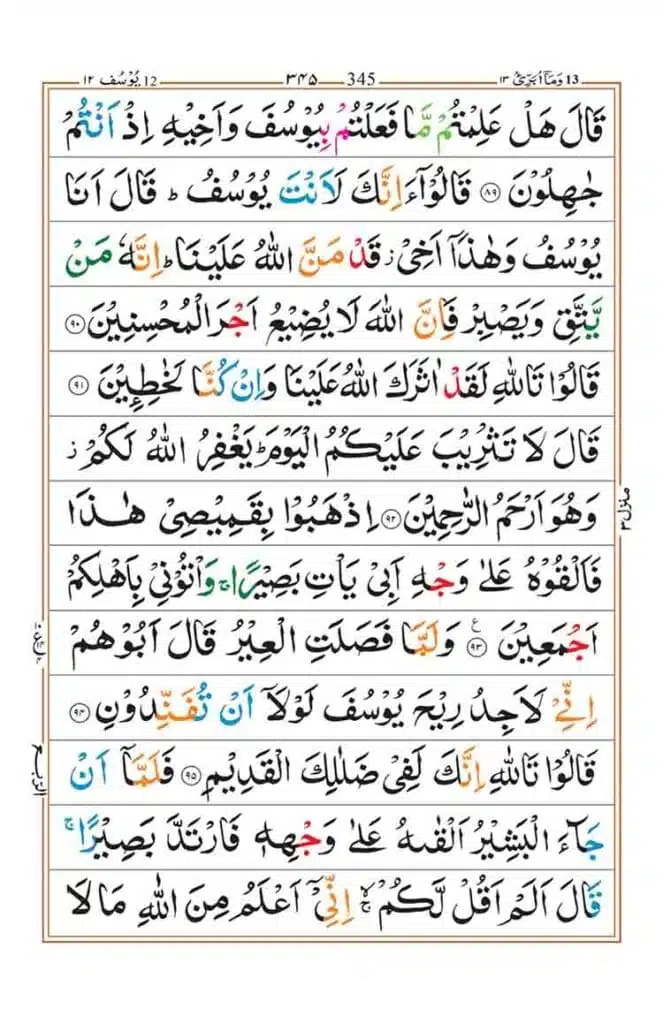 13 وَمَآ اُبَرِّئُ ١٣
345 ٣٤٥
12 يُوْسُف ١٢
قَالَ هَلْ عَلِمْتُمْ مَّا فَعَلْتُمْ بِيُوْسُفَ وَاَخِيْهِ اِذْ اَنْتُمْ
جٰهِلُوْنَ ﴿٨٩﴾ قَالُوْٓا ءَاِنَّكَ لَاَنْتَ يُوْسُفُ ؕ قَالَ اَنَا
يُوْسُفُ وَهٰذَاۤ اَخِىْ ؗ قَدْ مَنَّ اللّٰهُ عَلَيْنَا ؕ اِنَّهٗ مَنْ
يَّتَّقِ وَيَصْبِرْ فَاِنَّ اللّٰهَ لَا يُضِيْعُ اَجْرَ الْمُحْسِنِيْنَ ﴿٩٠﴾
قَالُوْا تَاللّٰهِ لَقَدْ اٰثَرَكَ اللّٰهُ عَلَيْنَا وَاِنْ كُنَّا لَخٰطِـِٕيْنَ ﴿٩١﴾
قَالَ لَا تَثْرِيْبَ عَلَيْكُمُ الْيَوْمَ ؕ يَغْفِرُ اللّٰهُ لَكُمْ ؗ
وَهُوَ اَرْحَمُ الرّٰحِمِيْنَ ﴿٩٢﴾ اِذْهَبُوْا بِقَمِيْصِىْ هٰذَا
فَاَلْقُوْهُ عَلٰى وَجْهِ اَبِىْ يَاْتِ بَصِيْرًا ۚ وَاْتُوْنِىْ بِاَهْلِكُمْ
اَجْمَعِيْنَ ﴿٩٣﴾ ع وَلَمَّا فَصَلَتِ الْعِيْرُ قَالَ اَبُوْهُمْ
اِنِّىْ لَاَجِدُ رِيْحَ يُوْسُفَ لَوْلَاۤ اَنْ تُفَنِّدُوْنِ ﴿٩٤﴾
قَالُوْا تَاللّٰهِ اِنَّكَ لَفِىْ ضَلٰلِكَ الْقَدِيْمِ ﴿٩٥﴾ فَلَمَّاۤ اَنْ
جَآءَ الْبَشِيْرُ اَلْقٰىهُ عَلٰى وَجْهِهٖ فَارْتَدَّ بَصِيْرًا ۚ
قَالَ اَلَمْ اَقُلْ لَّكُمْ ۙۚ اِنِّىْۤ اَعْلَمُ مِنَ اللّٰهِ مَا لَا
منزل ٣
الربع